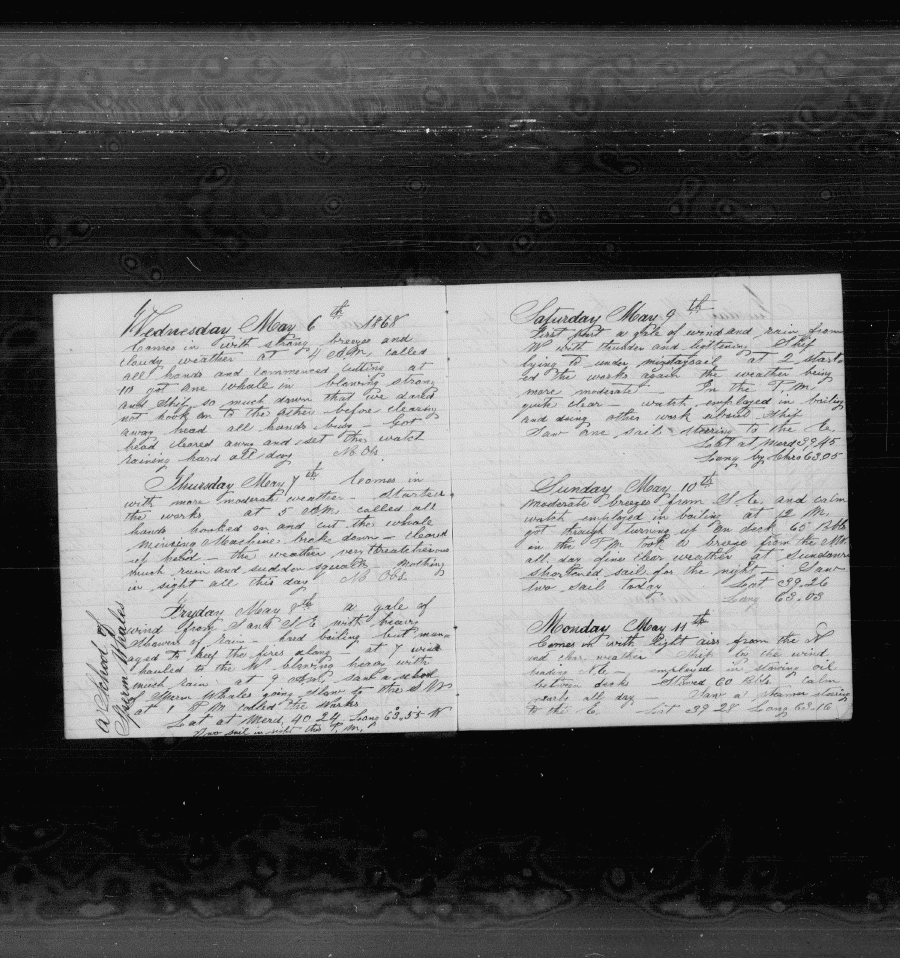 Wednesday May 6th 1868
Comes in with strong breeze and
cloudy weather at 4 A.M. called
all hands and commenced cutting at
11 got one whale in blowing strong
and Ship so much down that we dared
not hook on to the other before clearing
away head all hands busy Got
head cleared away and set the watch
raining hard all day No Obs.
Thursday May 7th Comes in
with more moderate weather Started
the works at 5 A.M. called all
hands hooked on and cut the whale
Mincing Machine broke down cleared
up the weather very threatening
much rain and sudden squalls Nothing
in sight all this day No Obs.
Fryday May 8th a gale of
wind from S E with heavy
showers of rain hard boiling but man-
aged to keep the fires along at 7 wind
hauled to the W blowing heavy with
much rain at 9 A.M. saw a school
of Sperm Whales going slow to the S W
at 1 P M cooled the Works
Lat at Merd, 40 24 Long 63.55 W
Two sail in sight this P.M.
a School of
Sperm Whales
Saturday May 9th
First part a gale of wind and rain from
W with thunder and lightening Ship
lying to under at 2 start-
ed the works again the weather being
more moderate In the P.M.
quite clear watch employed in boiling
and doing other work about Ship
Saw one sail Steering to the E.
Lat at Merd 39,45
Long by Chro 63.05
Sunday May 10th
Moderate breezes from S. E. and calm
watch employed in boiling at 12 M.
got through turning up on deck 65 Bbls
in the P.M. took a breeze from the
all day fine clear weather at Sundown
shortened sail for the night Saw
two sail today Lat 39.26
Long 63.03
Monday May 11th
Comes in with light airs from the N
and clear weather Ship by the wind
heading N.E. employed in stowing oil
between decks Stowed 60 Bbls calm
nearly all day Saw a steamer steering
to the E. Lat 39 28 Long 63.16